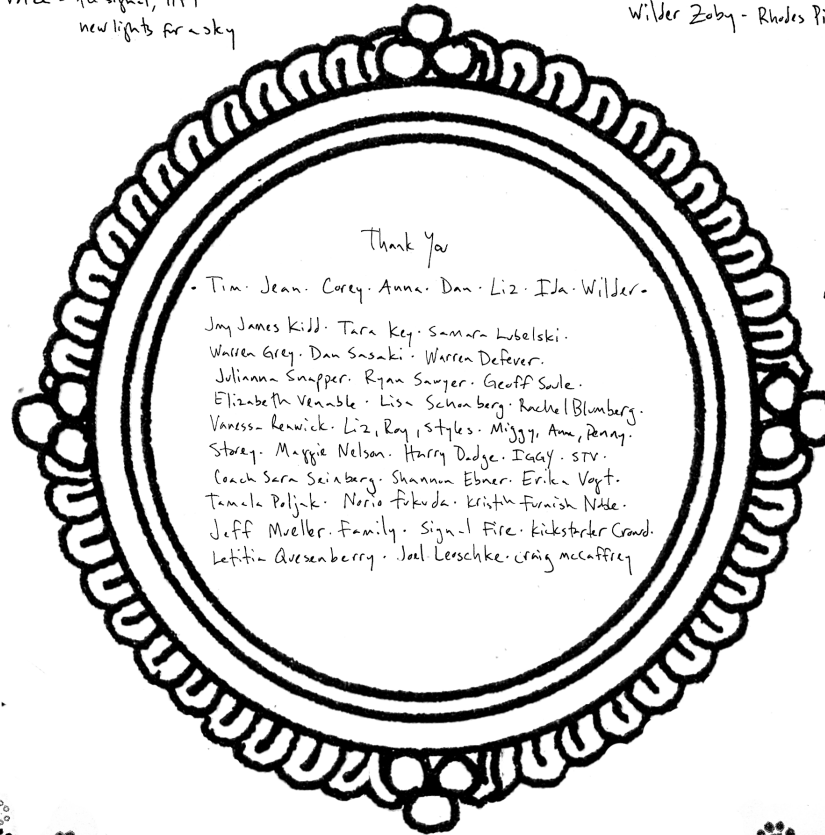 new lights for a sky
Wilder Zoby - Rhodes Pi
Thank You
· Tim · Jean · Corey · Anna · Dan · Liz · Ida · Wilder ·
Jmy James Kidd · Tara Key · Samara Lubelski ·
Warren Grey · Dan Sasaki · Warren Defever ·
Julianna Snapper · Ryan Sawyer · Geoff Soule ·
Elizabeth Venable · Lisa Schonberg · Rachel Blumberg ·
Vanessa Renwick · Liz, Ray, Styles · Miggy, Anne, Penny ·
Storey · Maggie Nelson · Harry Dodge · IGGY · STV ·
Coach Sara Seinberg · Shannon Ebner · Erika Vogt ·
Tamala Poljak · Norio Fukuda · Kristin Furnish Noble ·
Jeff Mueller · Family · Signal Fire · Kickstarter Crowd ·
Letitia Quesenberry · Joel Leoschke · Craig McCaffrey